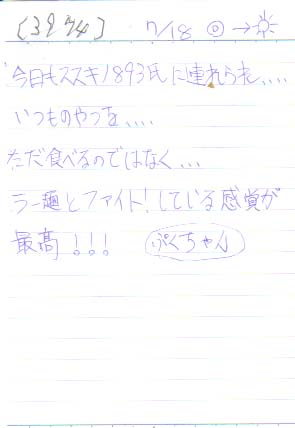 [3974] 7/18 ◎→☀
今日もススキノ893氏に連れられ....
いつものやつを....
ただ食べるのではなく...
ラー麺とファイト!している感覚が
最高!!! ぷくちゃん